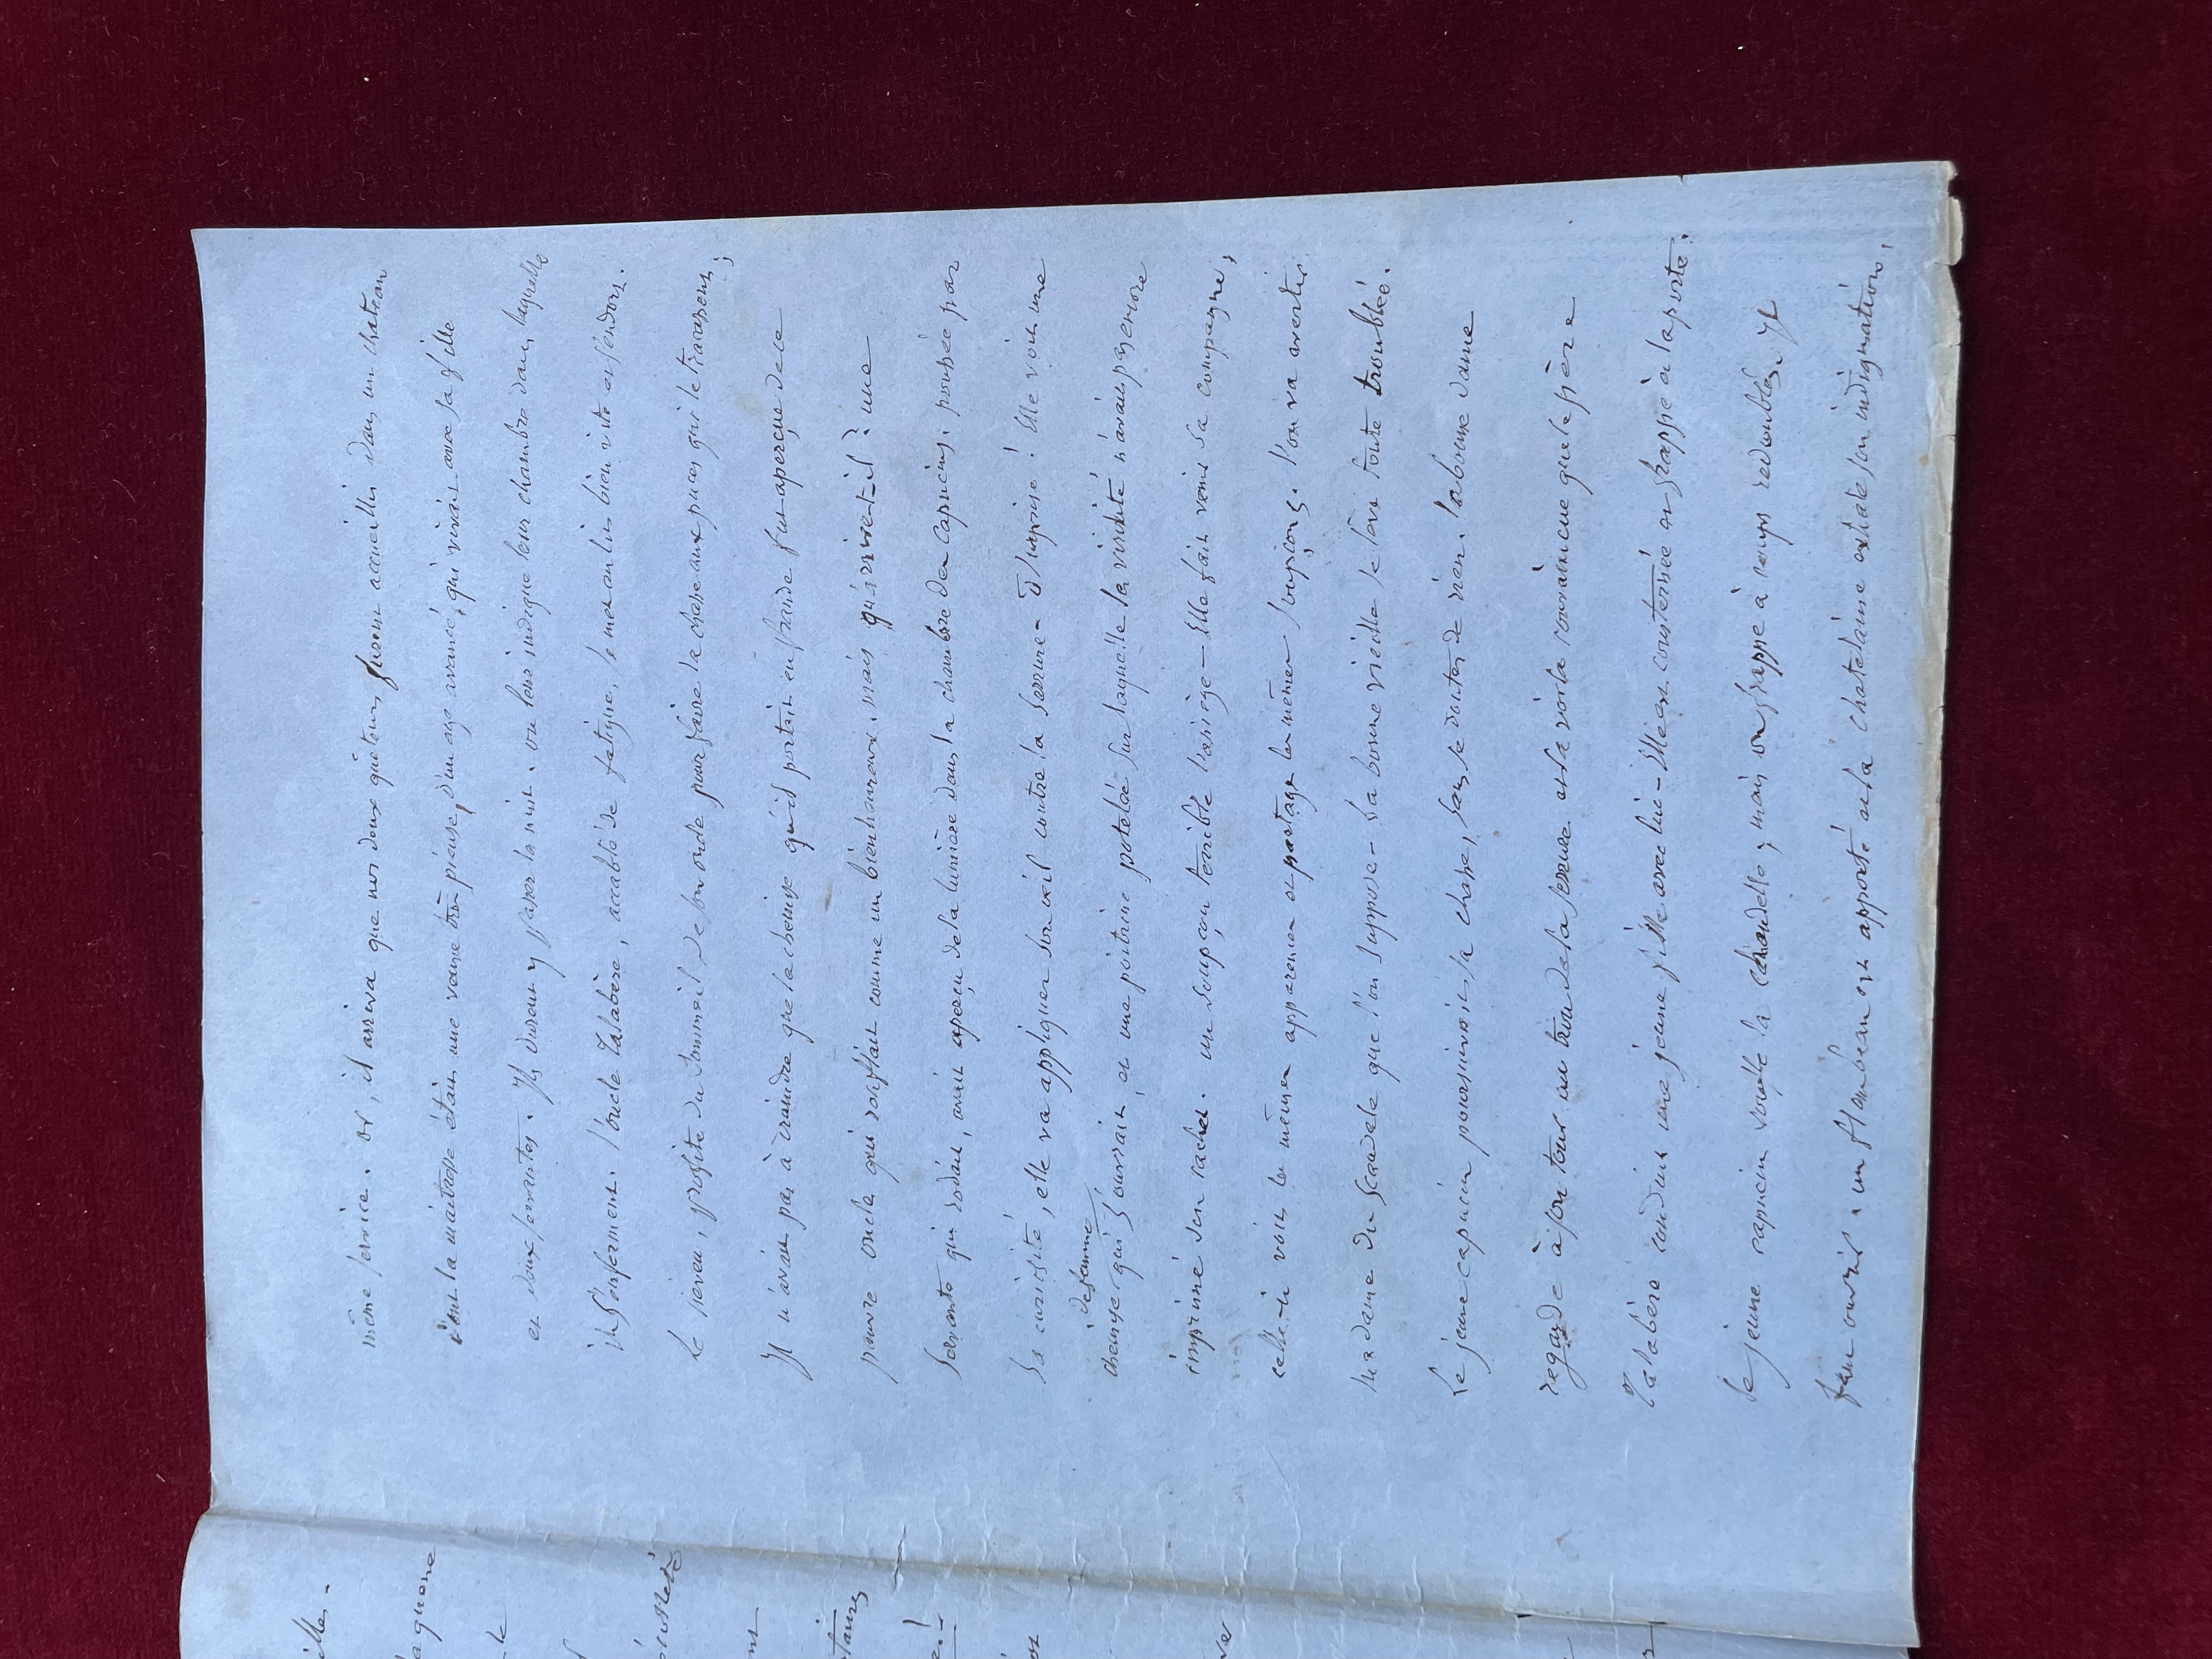 même service. or, il arriva que nos deux quêteurs furent accueillis dans un chateau
dont la maitresse était une veuve très pieuse, d'un age avancé, qui vivait avec sa fille
et deux servantes. Ils durent y passer la nuit. on leur indique leur chambre dans laquelle
ils s'enferment. l'oncle Talabère, accablé de fatigue, se met au lit bien vite et s'endort.
Le neveu, profite du sommeil de son oncle pour faire la chasse aux puces qui le tracassent;
Il n'avait pas à craindre que la chemise qu'il portait en fraude fut aperçue de ce
pauvre oncle qui ronflait comme un bienheureux. mais qu'arrive-t-il? une
servante qui rodait, avait aperçu de la lumière dans la chambre des capucins. poussée par
sa curiosité, elle va appliquer son œil contre la serrure - ô surprise! Elle voit une
chemise de femme qui s'ouvrait, et une poitrine potelée sur laquelle la visiteuse
imprimé son cachet. un soupçon terrible l'assiège - Elle fait venir sa compagne;
celle-ci voit les mêmes apparences et partage les mêmes soupçons. l'on va avertir
la dame du scandale que l'on suppose - la bonne vieille se lève toute troublée.
Le jeune capucin poursuivait sa chasse, sans se douter de rien. la bonne dame
regarde à son tour au trou de la serrure et la voilà convaincue que le père
Talabère conduit une jeune fille avec lui - Elle est consternée on frappe à la porte.
le jeune capucin souffle la chandelle; mais on frappe à coups redoublés. Il
faut ouvrir. un flambeau est apporté et la chatelaine exhale son indignation,